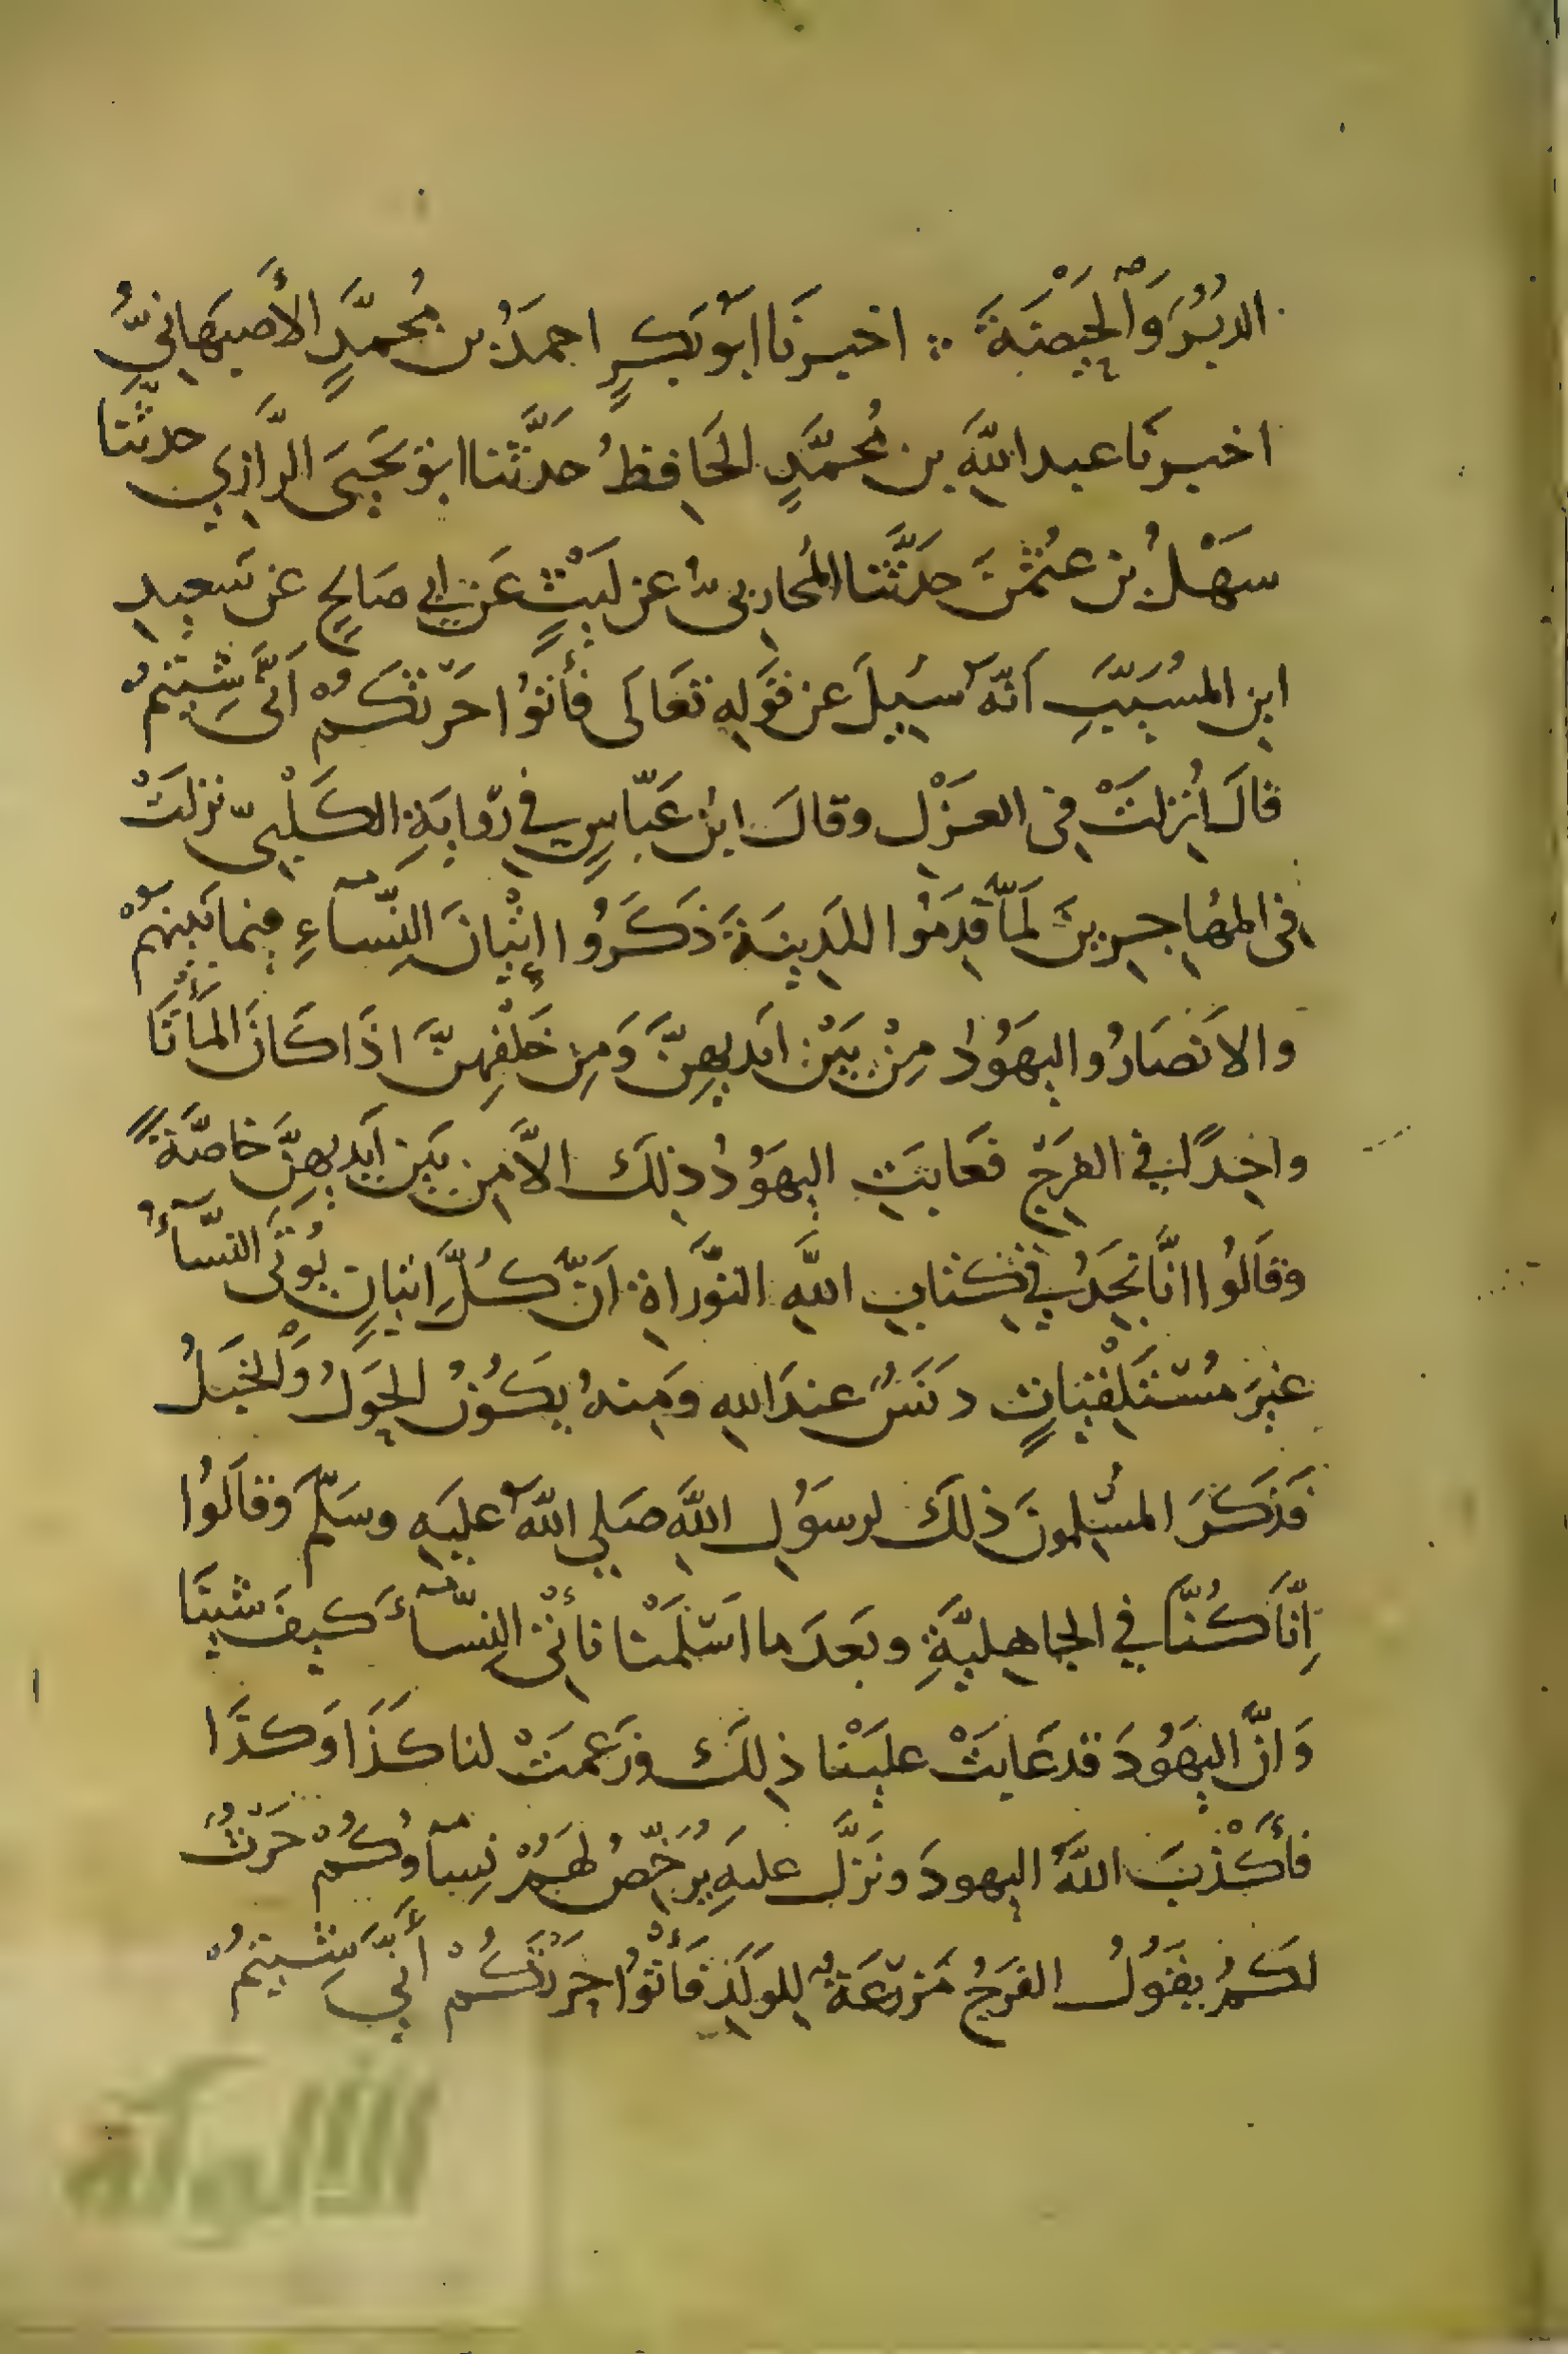 الدُبُرَ وَالْحَيْضَةَ ∴ اخبرنَا ابَوُ بَكرٍ احمَدُ بن مُحمَّدٍ الأَصبَهانيُّ
اخبرنَا عبد اللَّهِ بن مُحمَّدٍ الحَافِظُ حدَّثنا ابوُ يَحيَى الرَّازِي حدثَّنا
سهَْلُ بن عُثمٰنَ حدَثَّنا المُحاربىُّ عن ليَْثٍ عَن ابي صَالحٍ عن سَعيدِ
ابن المسُيَّبِ اَنّهُ سيِلَ عن قَولِهِ تعَالَى فأتوُا حَرْثَكُمْ اَنَّى شِيتمُْ
قالَ اُنزِلتَْ فى العَزْلِ وقالَ ابنُ عَبّاسٍ في رِوايَةِ الكَلبْيّ نزلتَْ
فى المهُاجرينَ لمَّا قدِمَوُا المَدِينَةَ ذكَرَوُا إتيَانَ النِّسآءِ فيما بَينهَمُْ
والاَنصَارُ واليهَوُد مِنْ بيَْنِ اَيديهِنَّ وَمِن خَلفْهِنَّ اذَا كانَ المَأْتَا
واحِدًا في الفرَْجِ فعَابَتِ اليهَوُدُ ذلِكَ الاَّ مِن بَين اَيديهِنَّ خاصَّةً
وقَالوُا انَّا نجَدُ في كتابِ اللَّهِ التوَّراةِ اَنّ كُلَّ اتيانٍ يُوتَى النسَّآءُ
غيرَ مُستَلقْيَاتٍ دنَسٌ عندَ اللهِ ومَنهُ يكَوُنُ الحَوَلُ وَالْخبَلُ
فذَكَرَ المسُْلِمونَ ذلكَ لرسَوُلِ اللَّهِ صَلي اللَّهُ عليَهِ وسَلّمَ وقاَلوُا
إِنَّا كُنَّا في الجاهِليَّةِ وبَعدَ ما اسَلمَْنا نأتى النسِّآءَ كَيفَ شيِنَا
وَانَّ اليهَوُدَ قد عَابَتْ عليَنْا ذلكَ وزَعمَتَْ لنا كذَا وَكذَا
فأَكذْبَ اللَّهُ اليهودَ ونَزَّلَ عليهِ يرُخِّصُ لهَمُْ نِسآوكُُمْ حَرْثٌ
لكَمُْ يقَوُلُ الفرَجُ مَزرعَةٌ للِولَدِ فَأْتوُا حَرْثَكُمْ أَنَّي شِيتمُْ
الألوكة